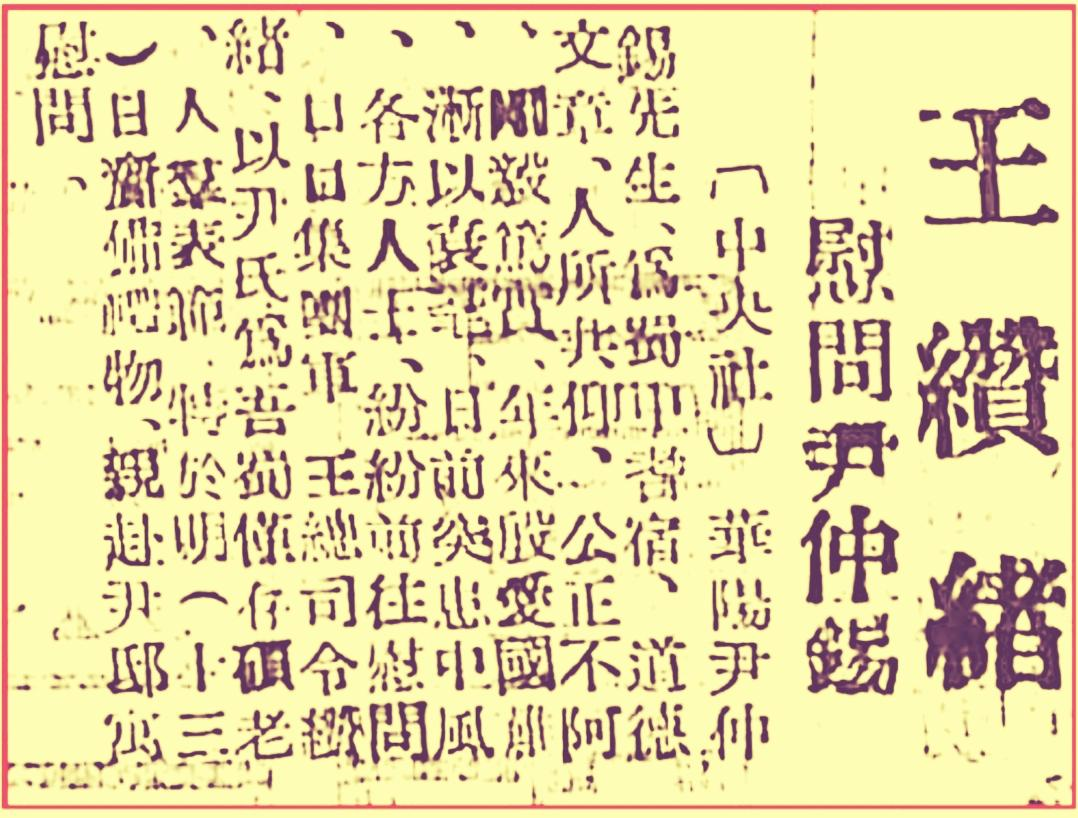 王纘緒
慰問尹仲錫
「中央社」華陽尹仲
錫先生、爲蜀中耆宿、道德
文章、人所共仰、公正不阿
、剛毅篤實、年來殷憂國難
、漸以衰耄、日前突患中風
、各方人士、紛紛前往慰問
、日集團軍王總司令纘
緒、以尹氏爲吾蜀僅存碩老
、人羣表範、特於明(十三
)日備物、親赴尹邸
慰問、